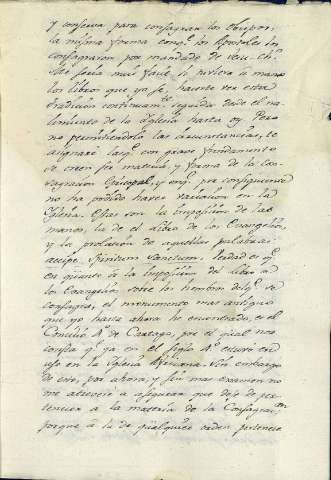 y conserva para consagrar los Obispos,
la misma forma con q.e los Apostoles los
consagraron por mandado de Jesu-Ch.to
Me sería muy facil si tuviera a mano
los libros que yo se, hacerte ver esta
tradicion continuam.te seguida desde el na-
cimiento de la Iglesia hasta oy. Pero
no permitiendolo las circunstancias, te
asignaré la q.e con grave fundamento
se creen ser materia, y forma de la con-
sagracion Episcopal, y en q.e p.r consiguiente
no ha podido haver variacion en la
Iglesia. Estas son la imposicion de las
manos, la de el Libro de los Evangelios,
y la prolacion de aquellas palabras:
accipe Spiritum Sanctum. Verdad es q.e
en quanto à la imposicion del libro de
los Evangelios sobre los hombros del q.e se
consagra, el monumento mas antiguo
que yo hasta ahora he encontrado, es el
Concilio 4.o de Cartago, por el qual nos
consta q.e ya en el siglo 4.o estuvo en
uso en la Iglesia Africana. Sin embargo
de eso, por ahora, y sin mas examen no
me atreveré a asegurar que deje de per-
tenecer a la materia de la Consagra.on
porque à la de qualquier orden pertenece